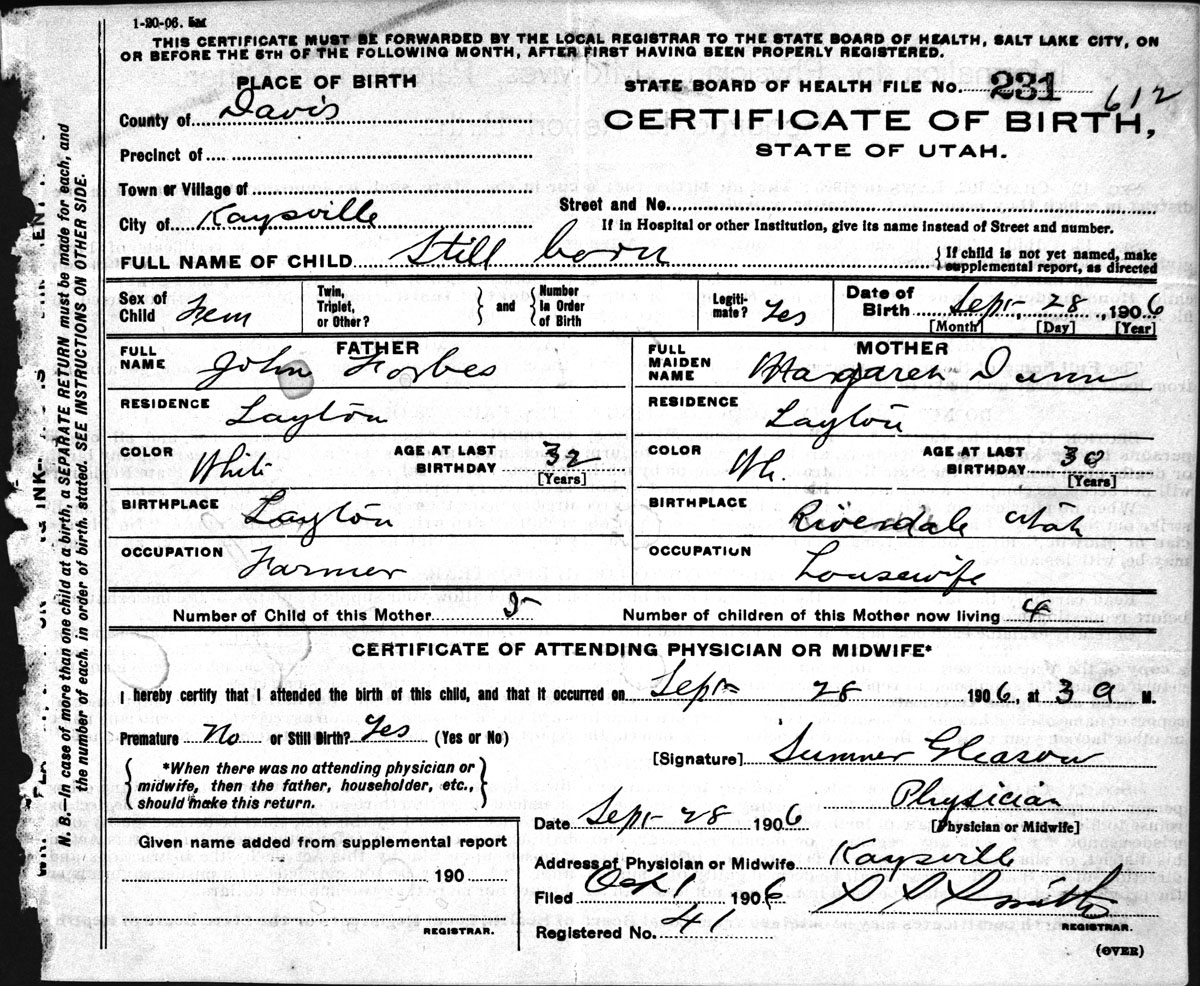 1-20-06. 5M
THIS CERTIFICATE MUST BE FORWARDED BY THE LOCAL REGISTRAR TO THE STATE BOARD OF HEALTH, SALT LAKE CITY, ON
OR BEFORE THE 5TH OF THE FOLLOWING MONTH, AFTER FIRST HAVING BEEN PROPERLY REGISTERED.
PLACE OF BIRTH
STATE BOARD OF HEALTH FILE NO. 231 612
County of Davis
CERTIFICATE OF BIRTH,
Precinct of
STATE OF UTAH.
Town or Village of
Street and No.
City of Kaysville
If in Hospital or other Institution, give its name instead of Street and number.
FULL NAME OF CHILD Still born {If child is not yet named, make supplemental report, as directed
Sex of Child Fem Twin, Triplet, or Other? } and { Number in Order of Birth Legiti-mate? Yes Date of Birth Sept- 28, 1906
[Month] [Day] [Year]
FATHER
FULL NAME John Forbes
RESIDENCE Layton
COLOR White AGE AT LAST BIRTHDAY 32 [Years]
BIRTHPLACE Layton
OCCUPATION Farmer
MOTHER
FULL MAIDEN NAME Margaret Dunn
RESIDENCE Layton
COLOR Wh. AGE AT LAST BIRTHDAY 30 [Years]
BIRTHPLACE Riverdale Utah
OCCUPATION Housewife
Number of Child of this Mother 5 Number of children of this Mother now living 4
CERTIFICATE OF ATTENDING PHYSICIAN OR MIDWIFE*
I hereby certify that I attended the birth of this child, and that it occurred on Sept- 28 1906, at 3 a M.
Premature No or Still Birth? Yes (Yes or No)
[Signature] Sumner Gleason
{*When there was no attending physician or
midwife, then the father, householder, etc.,
should make this return.}
Physician
[Physician or Midwife]
Date Sept- 28 1906
Given name added from supplemental report
190
REGISTRAR.
Address of Physician or Midwife Kaysville
Filed Oct 1 1906 Smith
REGISTRAR.
Registered No. 41
(OVER)
N. B.—In case of more than one child at a birth, a SEPARATE RETURN must be made for each, and
the number of each, in order of birth, stated. SEE INSTRUCTIONS ON OTHER SIDE.